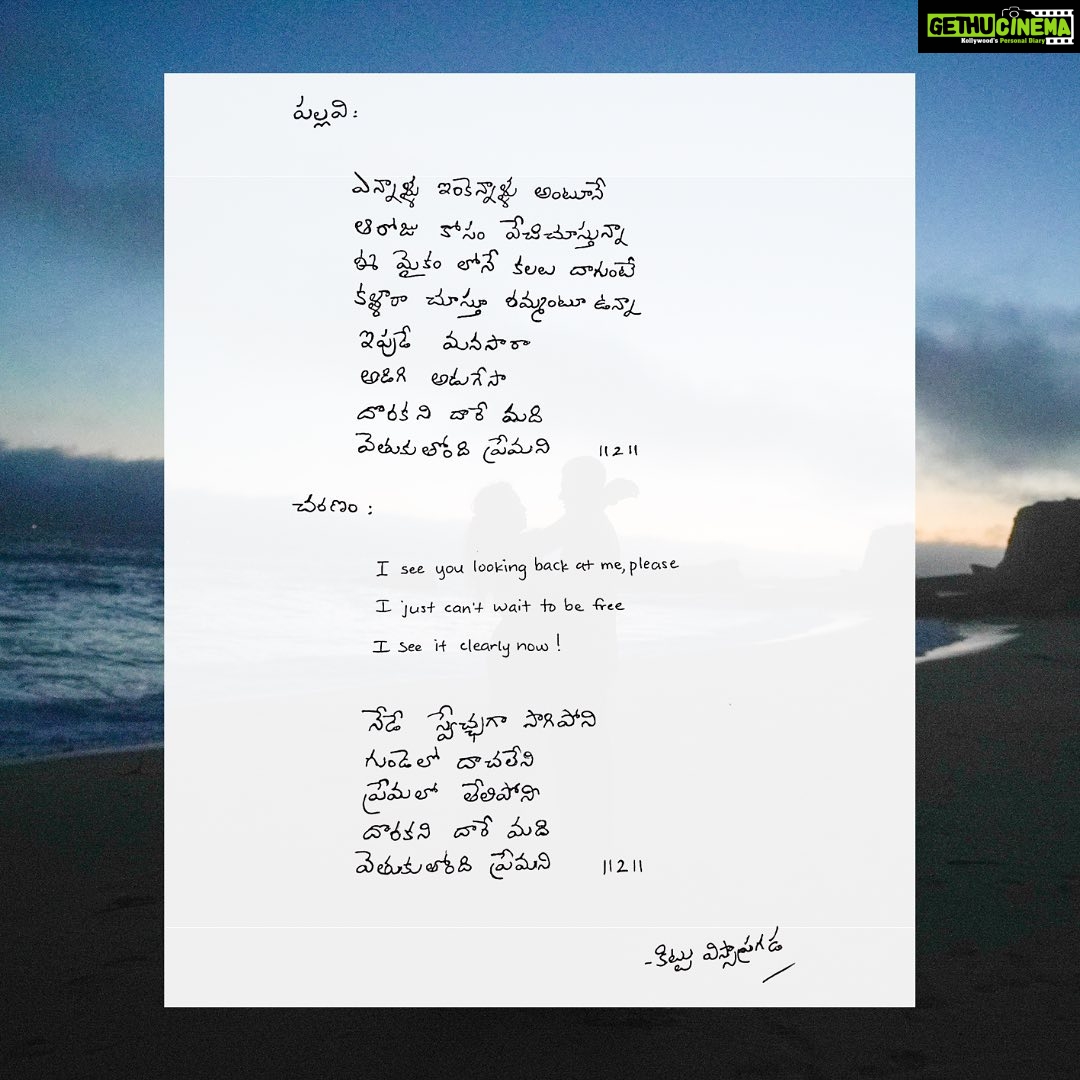 GETHUCINEMA
Kollywood's Personal Diary
పల్లవి :
ఎన్నాళ్ళు ఇంకెన్నాళ్ళు అంటూనే
ఆరోజు కోసం వేచిచూస్తున్నా
ఈ మైకం లోనే కలలు దాగుంటే
కళ్ళారా చూస్తూ రమ్మంటూ ఉన్నా
ఇపుడే మనసారా
అడిగి అడుగేసా
దొరకని దారే మది
వెతుకుతోంది ప్రేమని ||2||
చరణం :
I see you looking back at me, please
I just can't wait to be free
I see it clearly now!
నేడే స్వేచ్ఛగా సాగిపోని
గుండెలో దాచలేని
ప్రేమలో తేలిపోని
దొరకని దారే మది
వెతుకుతోంది ప్రేమని ||2||
-కిట్టు విస్సాప్రగడ